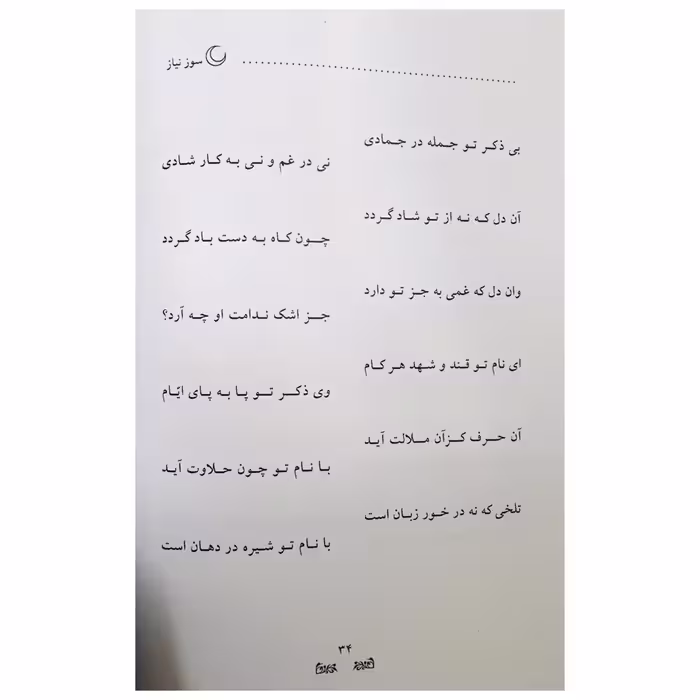 سوز نیاز
بی ذکر تو جمله در جمادی
نی در غم و نی به کار شادی
آن دل که نه از تو شاد گردد
چون کاه به دست باد گردد
وان دل که غمی به جز تو دارد
جز اشک ندامت او چه آرد؟
ای نام تو قند و شهد هر کام
وی ذکر تو پا به پای ایّام
آن حرف کزآن ملالت آید
با نام تو چون حلاوت آید
تلخی که نه در خور زبان است
با نام تو شیره در دهان است
۳۴